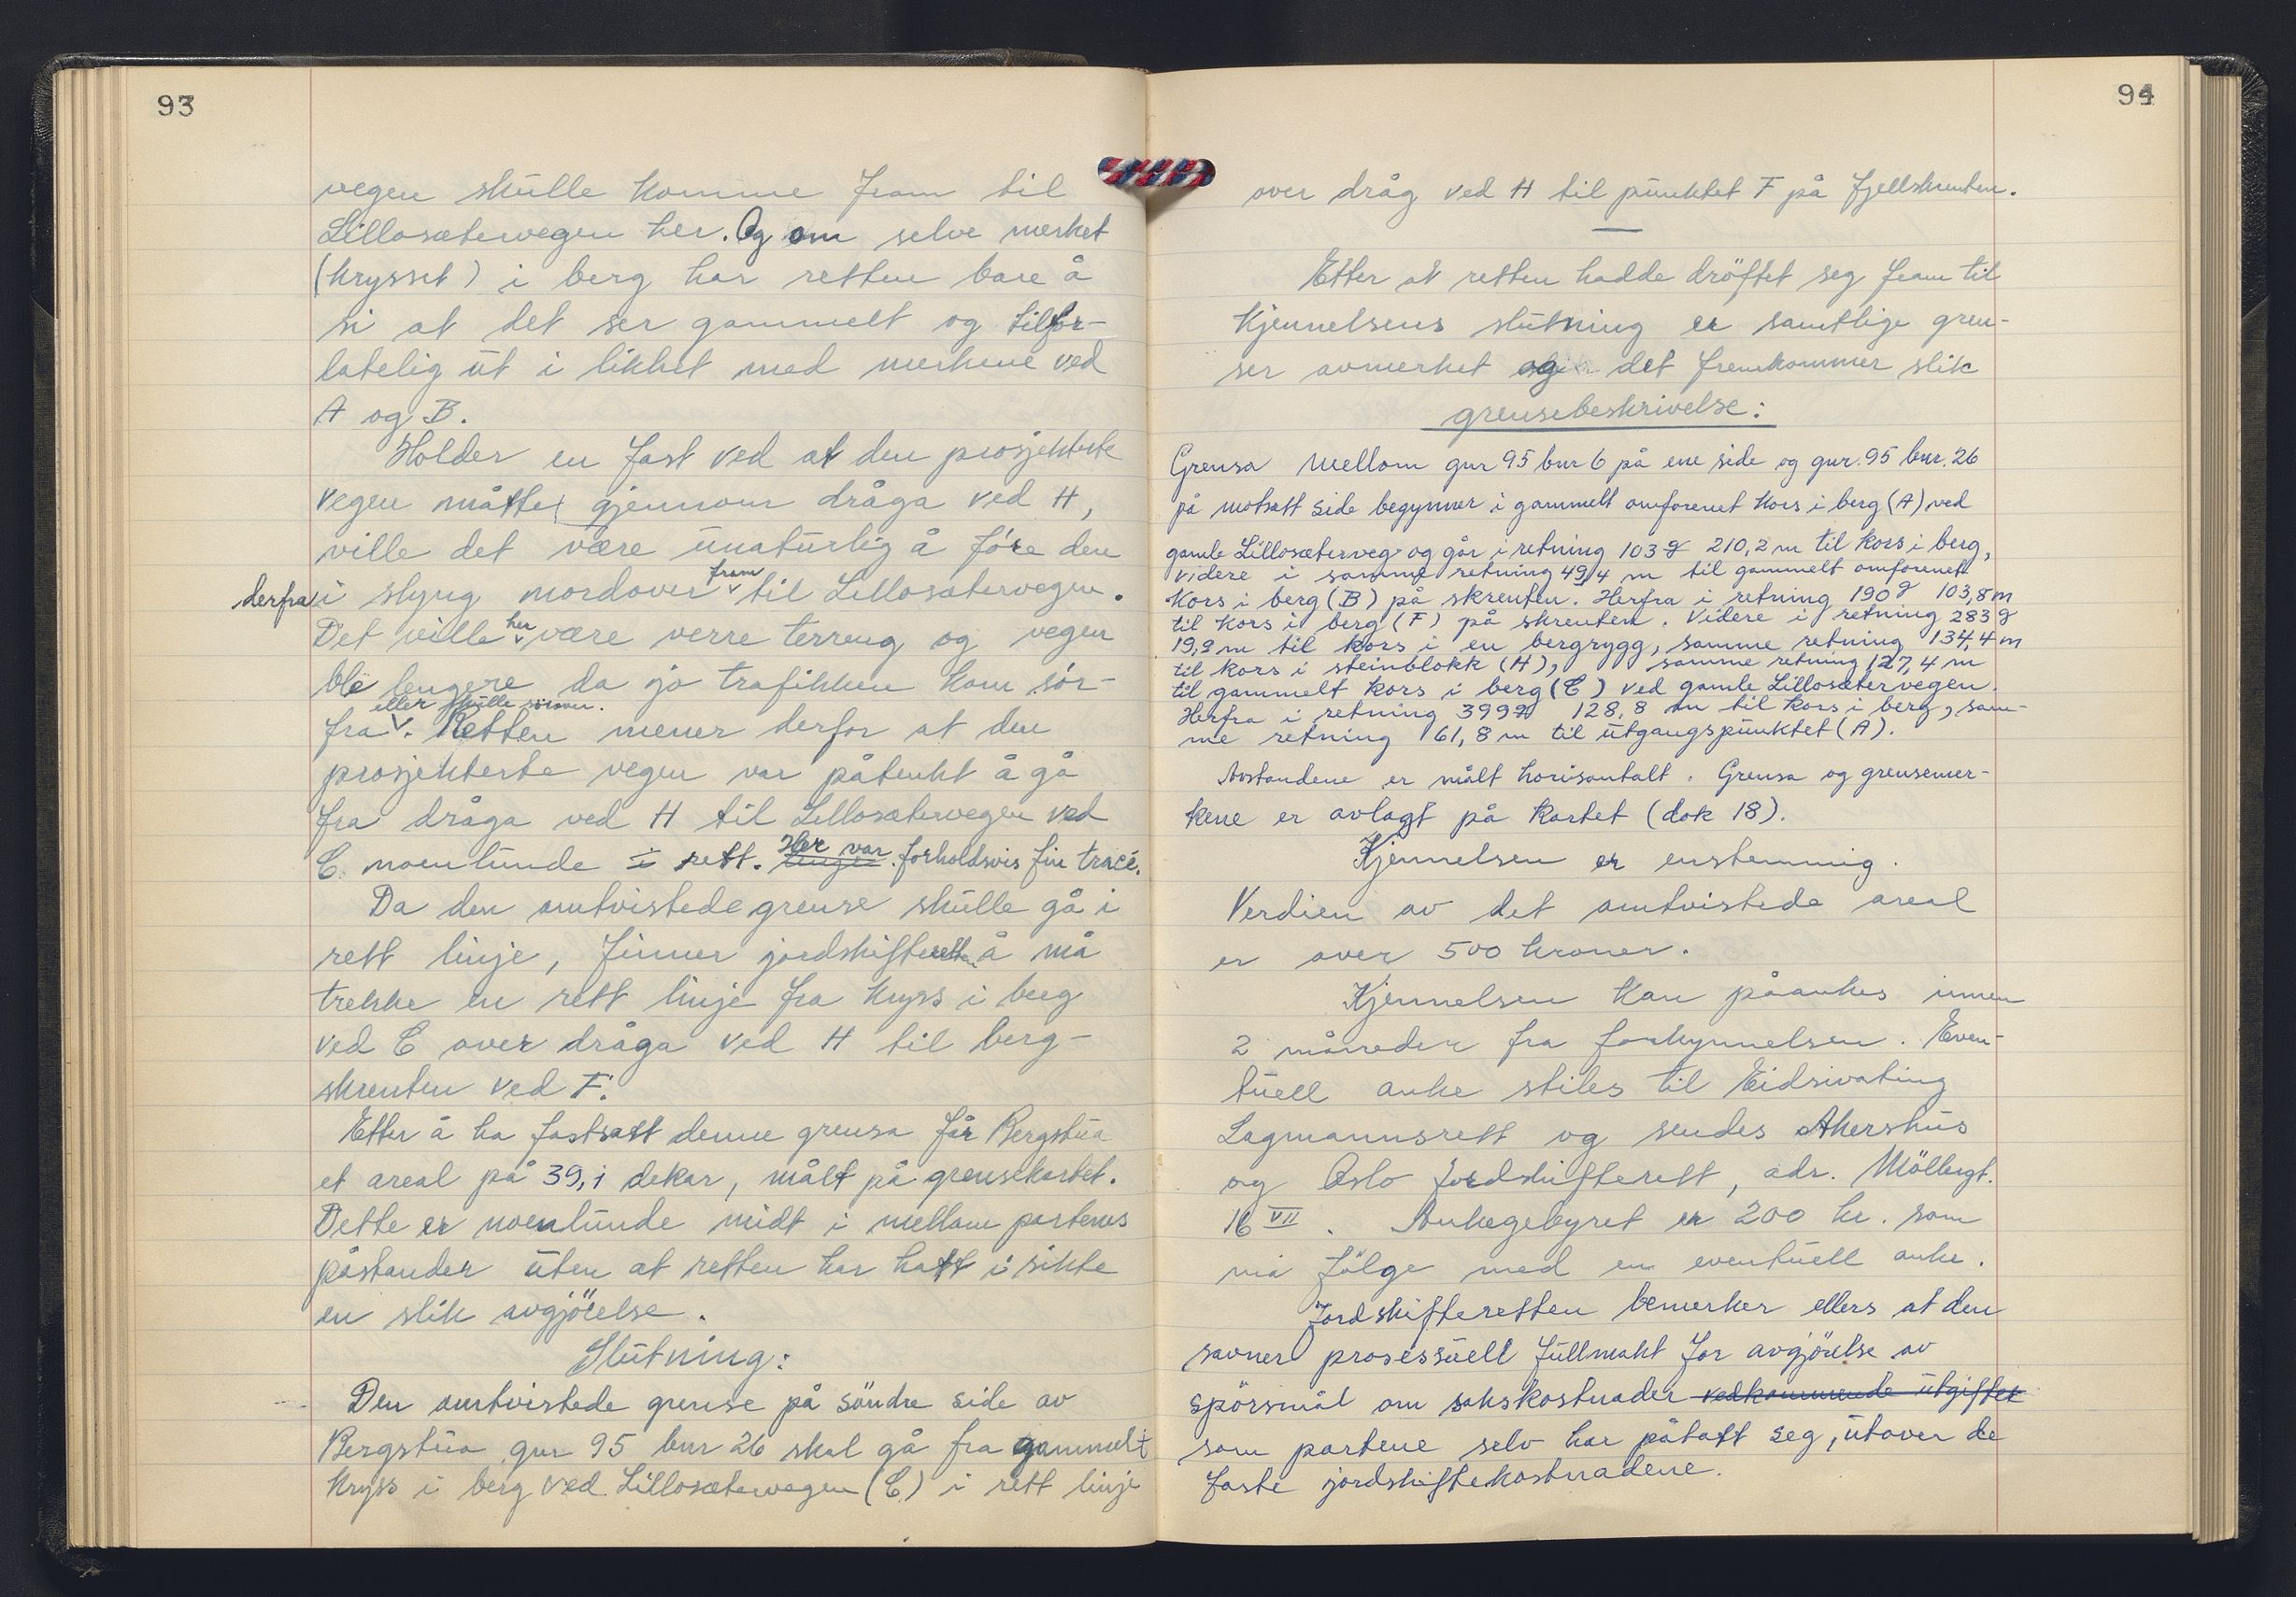 93
vegen skulle komme fram til
Lillosætervegen her. Og om selve merket
(krysset) i berg har retten bare å
si at det ser gammelt og tilfor-
latelig ut i likhet med merkene ved
A og B.
Holder en fast ved at den prosjekterte
vegen måtte gjennom dråga ved H,
ville det være unaturlig å føre den
derfra i slyng nordover fram til Lillosætervegen.
Det ville her være verre terreng og vegen
ble lengere da jo trafikken kom sør-
fra eller skulle sørover. Retten mener derfor at den
prosjekterte vegen var påtenkt å gå
fra dråga ved H til Lillosætervegen ved
C noenlunde i rett. linje. Her var forholdsvis fin tracé.
Da den omtvistede grense skulle gå i
rett linje, finner jordskifteretten å må
trekke en rett linje fra kryss i berg
ved C over dråga ved H til berg-
skrenten ved F.
Etter å ha fastsatt denne grensa får Bergstua
et areal på 39,1 dekar, målt på grensekartet.
Dette er noenlunde midt i mellom partenes
påstander uten at retten har hatt i sikte
en slik avgjörelse.
Slutning:
Den omtvistede grense på söndre side av
Bergstua gnr 95 bnr 26 skal gå fra gammelt
kryss i berg ved Lillosætervegen (C) i rett linje
94
over dråg ved H til punktet F på fjellskrenten.
Etter at retten hadde dröftet seg fram til
kjennelsens slutning er samtlige gren-
ser avmerket og det fremkommer slik
grensebeskrivelse:
Grensa mellom gnr 95 bnr 6 på ene side og gnr. 95 bnr. 26
på motsatt side begynner i gammelt omforenet kors i berg (A) ved
gamle Lillosæterveg og går i retning 103 g 210,2 m til kors i berg,
videre i samme retning 49,4 m til gammelt omforenet
kors i berg (B) på skrenten. Herfra i retning 190 g 103,8 m
til kors i berg (F) på skrenten. Videre i retning 283 g
19,9 m til kors i en bergrygg, samme retning 134,4 m
til kors i steinblokk (H), samme retning 127,4 m
til gammelt kors i berg (C) ved gamle Lillosætervegen.
Herfra i retning 399 g 128,8 m til kors i berg, sam-
me retning 61,8 m til utgangspunktet (A).
Avstandene er målt horisontalt. Grensa og grensemer-
kene er avlagt på kartet (dok 18).
Kjennelsen er enstemmig.
Verdien av det omtvistede areal
er over 500 kroner.
Kjennelsen kan påankes innen
2 måneder fra forkynnelsen. Even-
tuell anke stiles til Eidsivating
Lagmannsrett og sendes Akershus
og Oslo jordskifterett, adr. Möllergt.
16 VII. Ankegebyret er 200 kr. som
må fölge med en eventuell anke.
Jordskifteretten bemerker ellers at den
savner prosessuell fullmakt for avgjörelse av
spörsmål om sakskostnader vedkommende utgifter
som partene selv har påtatt seg, utover de
faste jordskiftekostnadene.